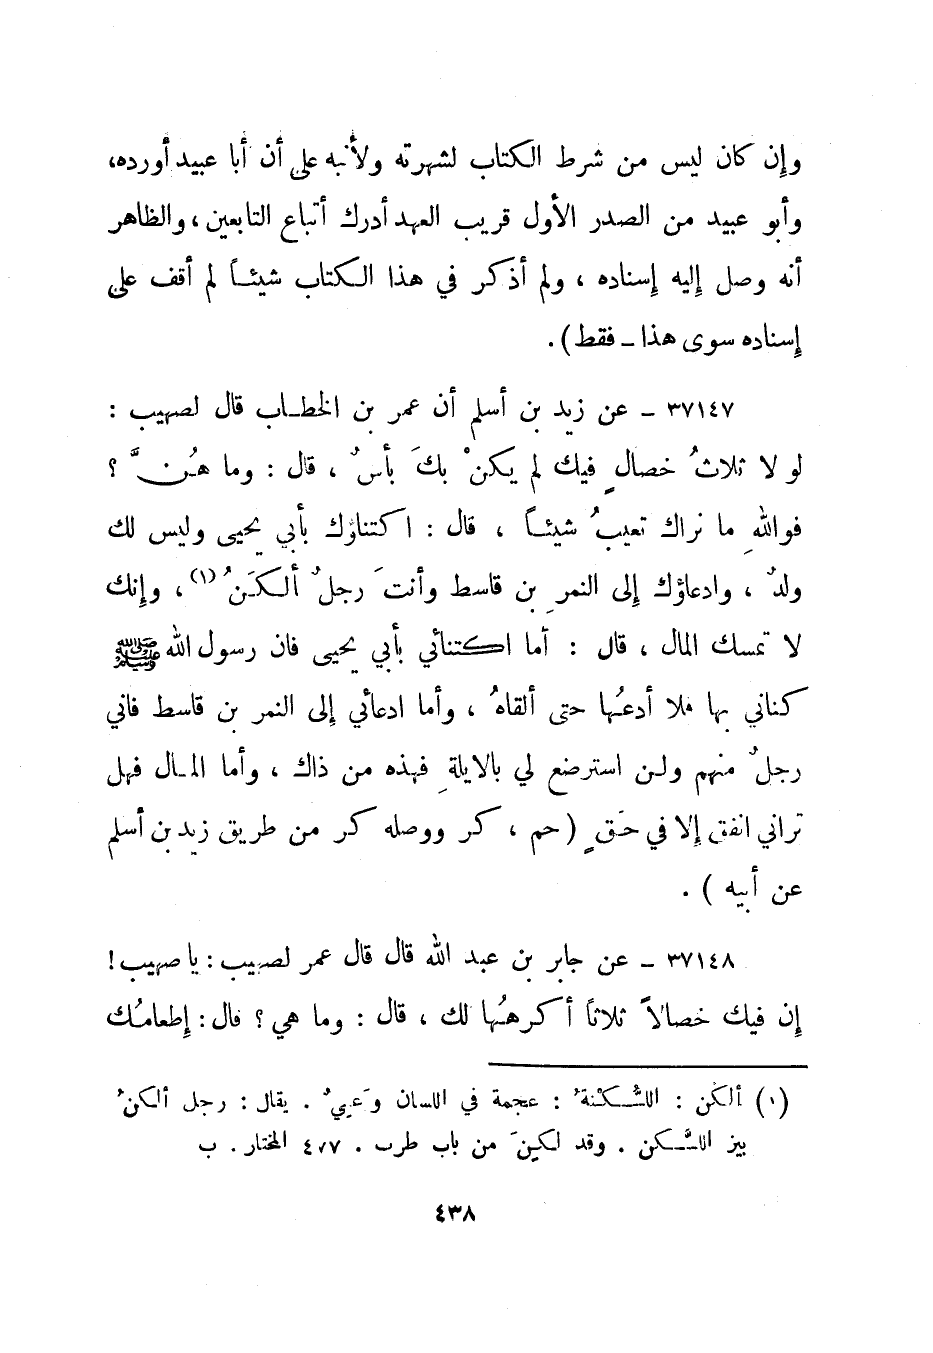 وإن كان ليس من شرط الكتاب لشهرته ولأنبه على أن أبا عبيد أورده،
وأبو عبيد من الصدر الأول قريب العهد أدرك أتباع التابعين، والظاهر
أنه وصل إليه إسناده ، ولم أذكر في هذا الكتاب شيئاً لم أقف على
إسناده سوى هذا ـ فقط) .
٣٧١٤٧ ـ عن زيد بن أسلم أن عمر بن الخطاب قال لصهيب :
لو لا ثلاثُ خصالٍ فيك لم يكنْ بكَ بأسٌ ، قال : وما هُنَّ ؟
فواللهِ ما نراك تعيبُ شيئاً ، قال : اكتناؤك بأبي يحيى وليس لك
ولدٌ ، وادعاؤك إلى النمرِ بن قاسط وأنتَ رجلٌ ألكَنُ (١) ، وإنك
لا تمسك المال ، قال : أما اكتنائي بأبي يحيى فان رسول الله ﷺ
كناني بها فلا أدعُها حتى ألقاهُ ، وأما ادعائي إلى النمر بن قاسط فاني
رجلٌ منهم ولن استرضع لي بالايلةِ فهذه من ذاك ، وأما المال فهل
تراني انفق إلا في حَقٍ (حم ، كر ووصله كر من طريق زيد بن أسلم
عن أبيه ) .
٣٧١٤٨ ـ عن جابر بن عبد الله قال قال عمر لصهيب : يا صهيب !
إن فيك خصالاً ثلاثاً أكرهُها لك ، قال : وما هي ؟ قال : إطعامُك
(١) ألكن : اللُّكْنةُ : عجمة في اللسان وَعِيٌ . يقال : رجل ألكنُ
بيز اللَّكن . وقد لكِنَ من باب طرب . ٤٧٧ المختار . ب
٤٣٨